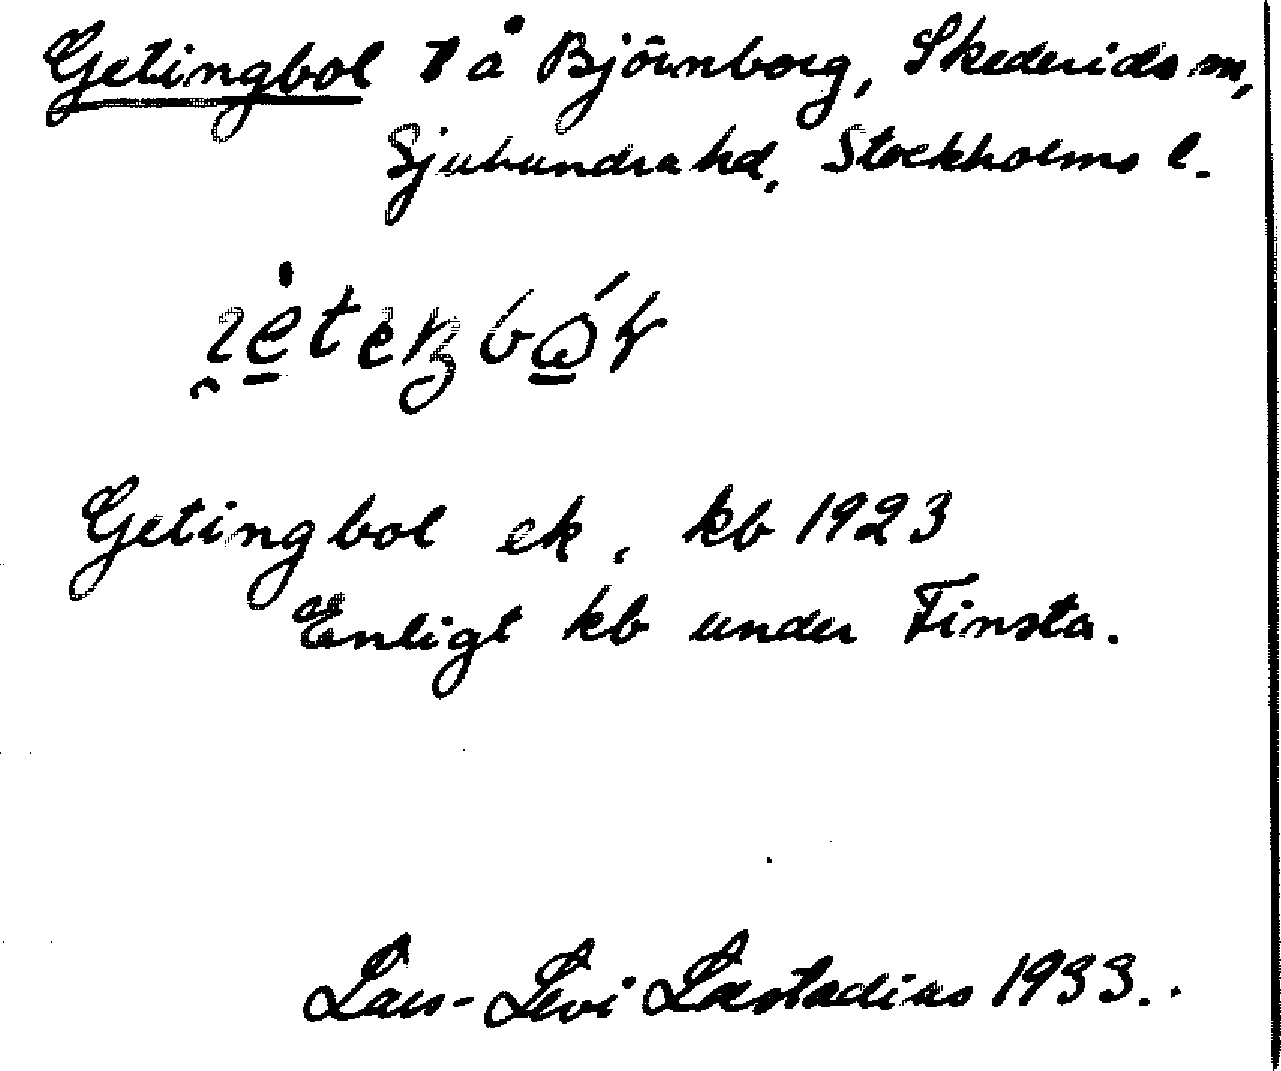 Getingbol t å Björnborg, Skederids sn,
Sjuhundra hd, Stockholms l.
Getingbol ek. kb 1923
Enligt kb under Finsta.
Lars-Levi Læstadius 1933.